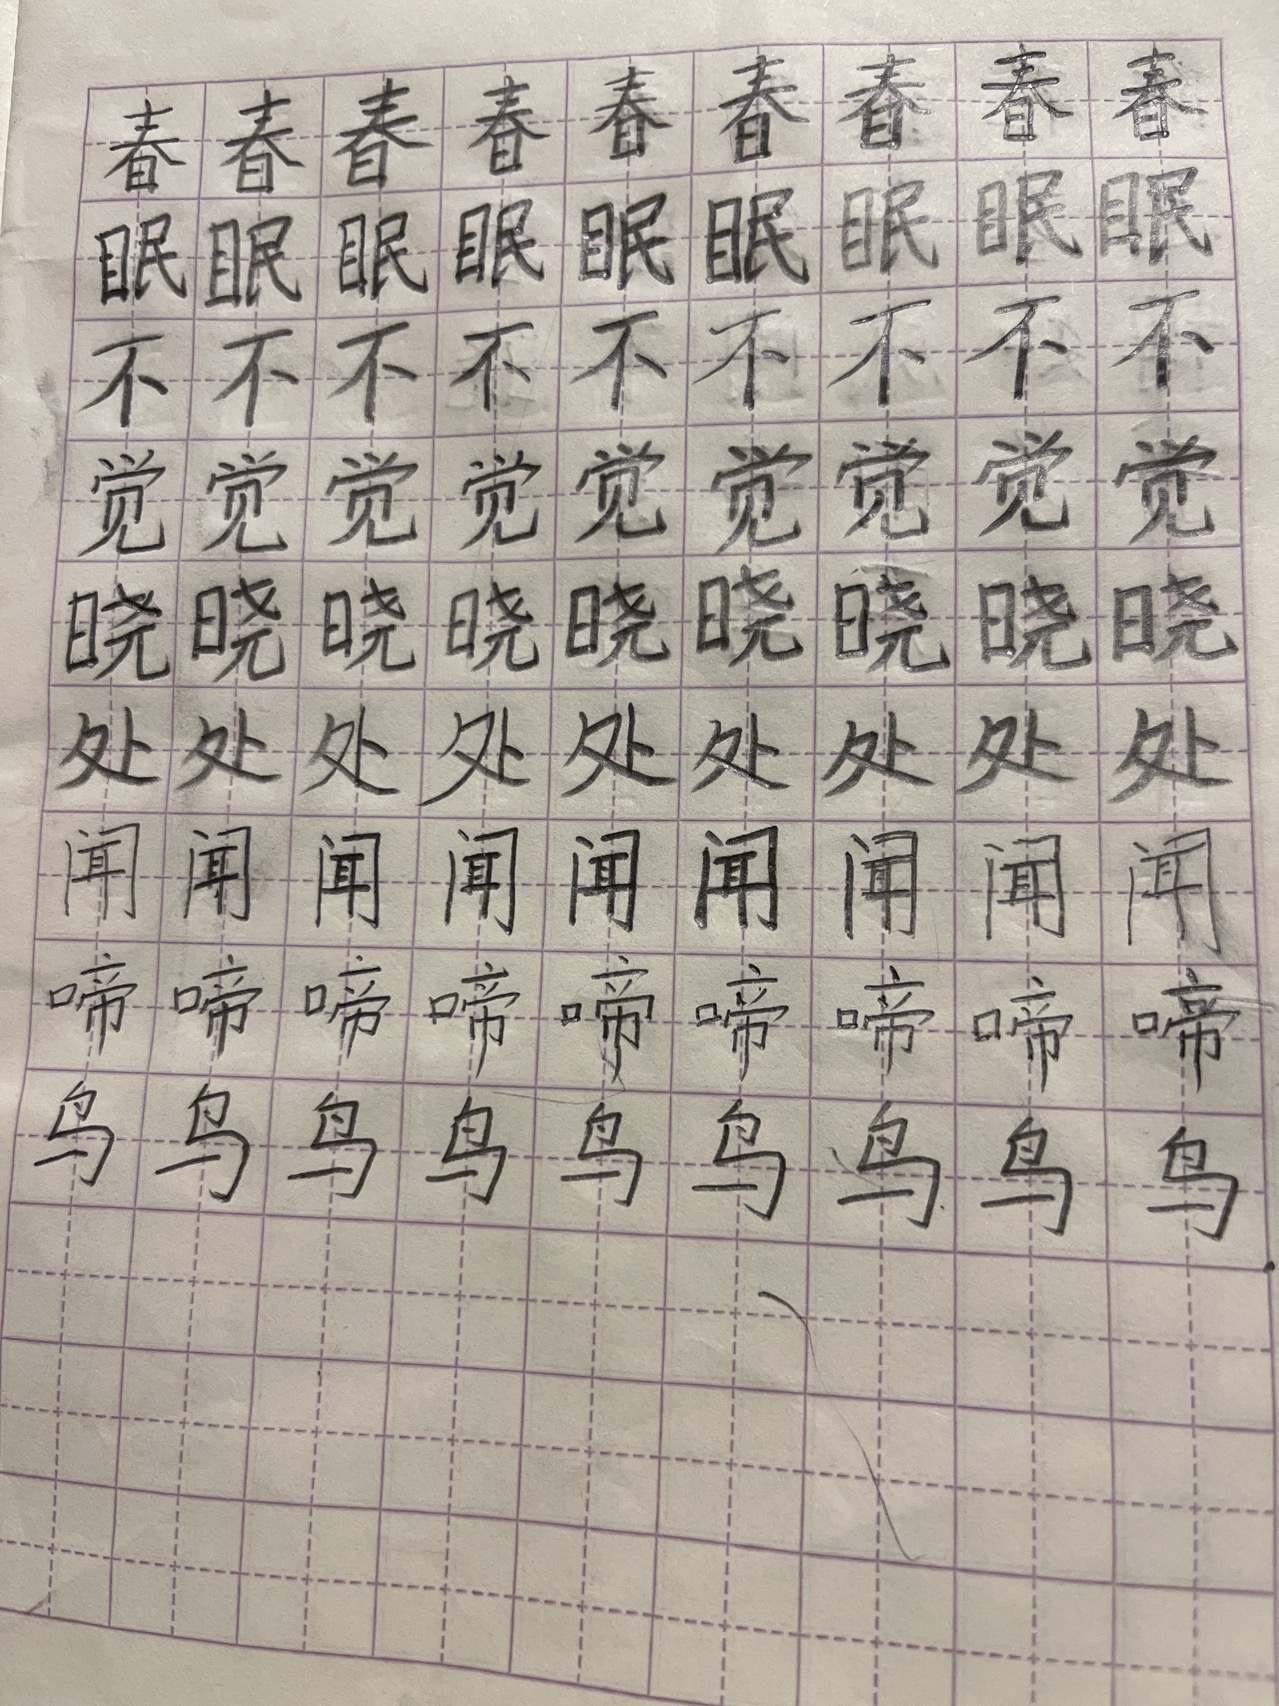 春春春春春春春春春
眠眠眠眠眠眠眠眠眠
不不不不不不不不不
觉觉觉觉觉觉觉觉觉
晓晓晓晓晓晓晓晓晓
处处处处处处处处处
闻闻闻闻闻闻闻闻闻
啼啼啼啼啼啼啼啼啼
鸟鸟鸟鸟鸟鸟鸟鸟鸟